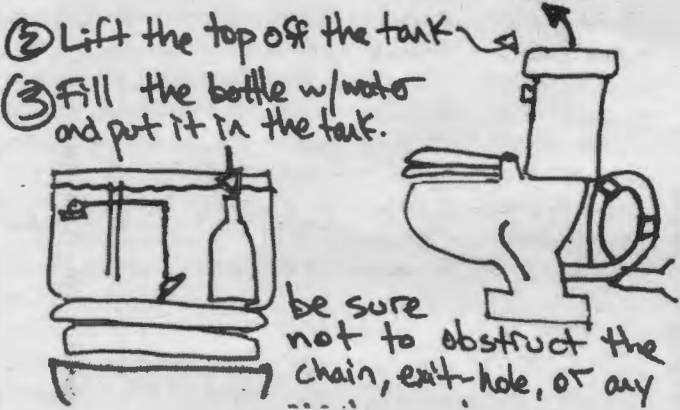 ② Lift the top off the tank
③ Fill the bottle w/water
and put it in the tank.
be sure
not to obstruct the
chain, exit-hole, or any